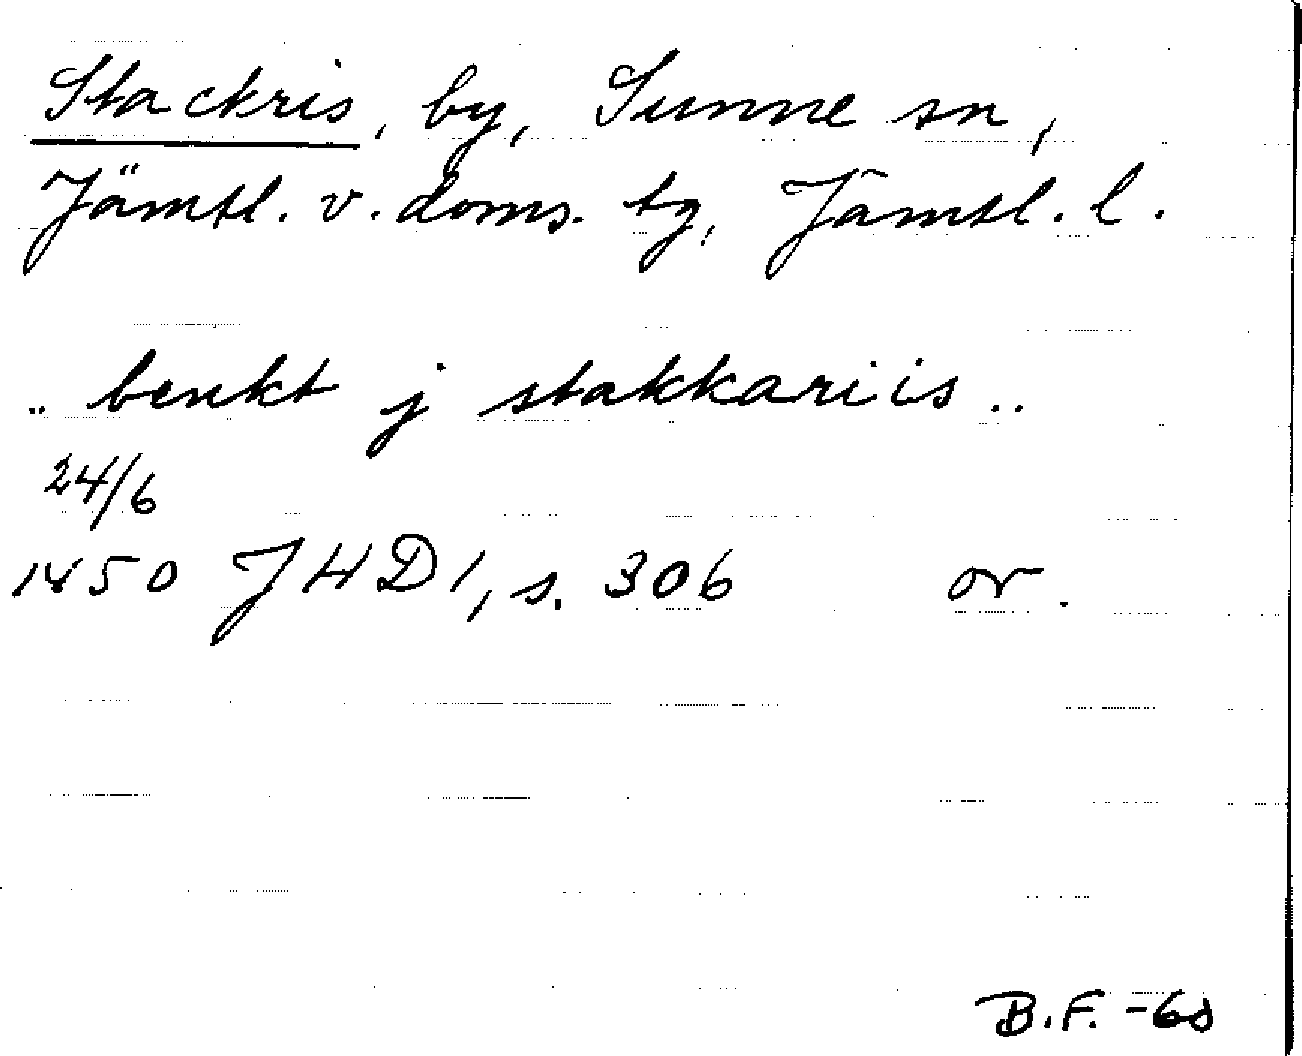 Stackris, by, Sunne sn,
Jämtl. v. doms. tg, Jämtl. l.
.. benkt j stakkariis ..
24/6
1450 JHD 1, s. 306 or.
B.F. -60